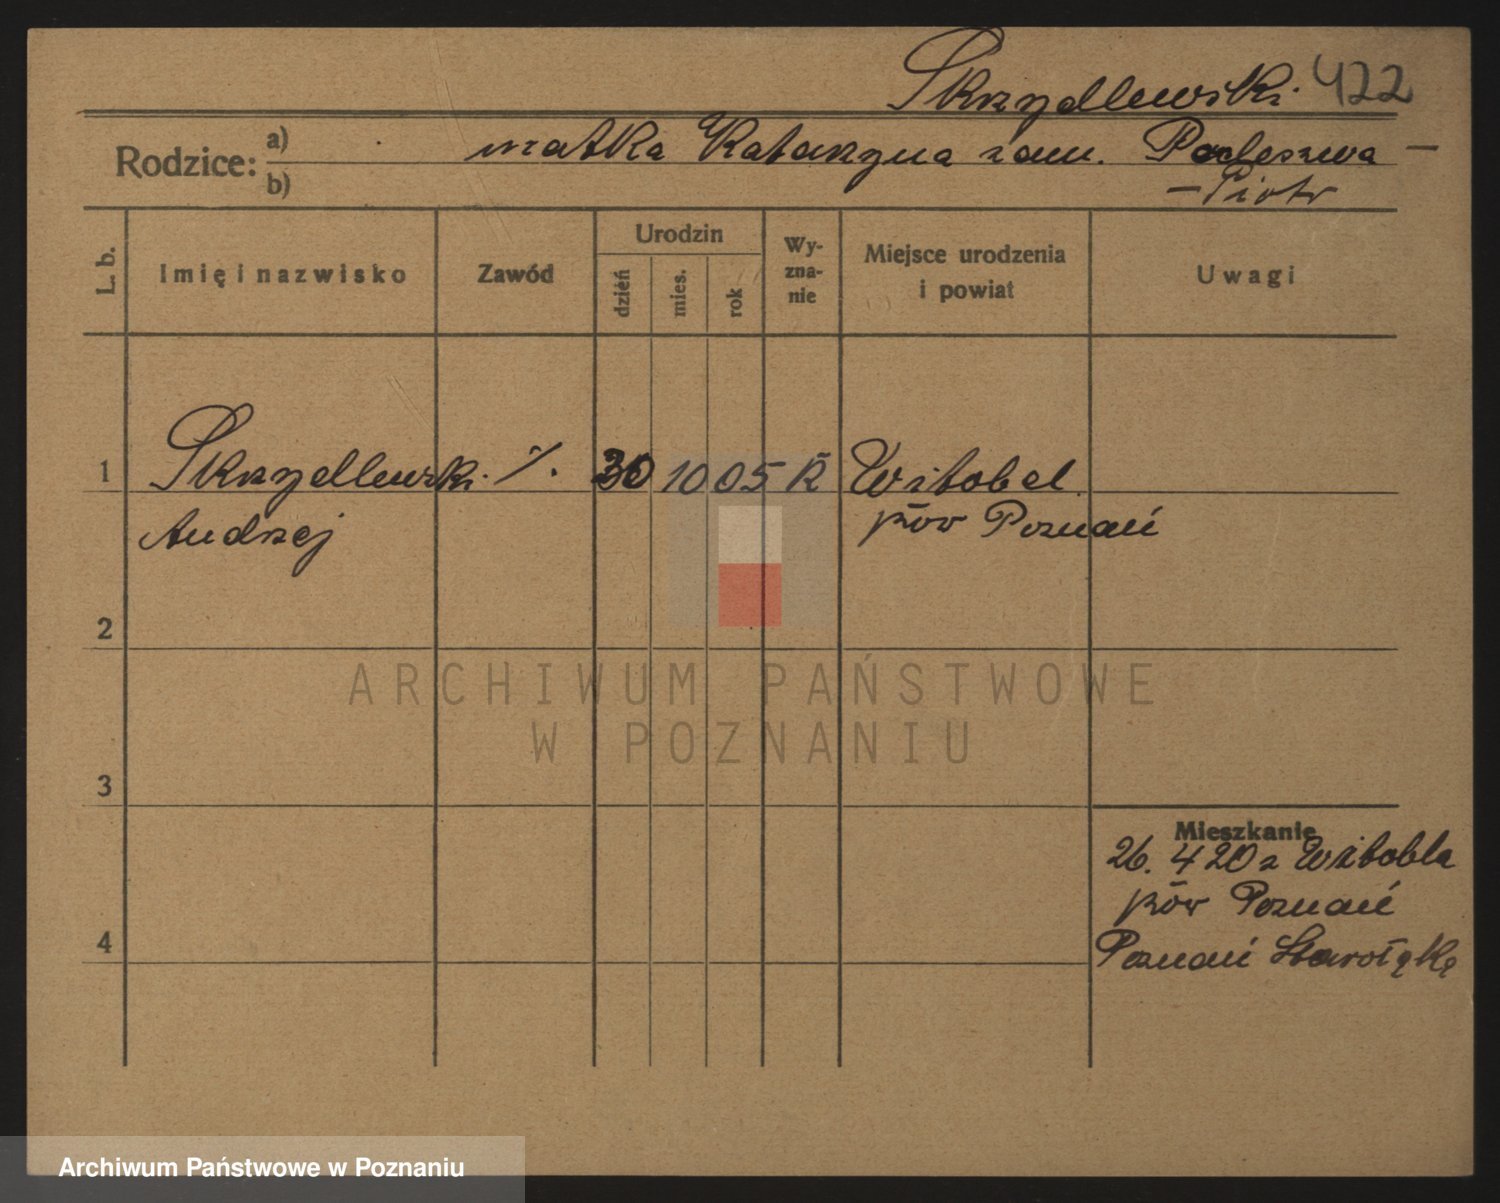 Skrzydlewski 422
Rodzice: a) matka Katarzyna zam. Podeszwa —
b) — Piotr
L. b.
Imię i nazwisko
Zawód
Urodzin
dzień
mies.
rok
Wy-
zna-
nie
Miejsce urodzenia
i powiat
Uwagi
1 Skrzydlewski ·/. 30 10 05 K Witobel
Andrzej pow Poznań
2
ARCHIWUM PAŃSTWOWE
W POZNANIU
3
Mieszkanie
26. 4 20 z Witobla
pow Poznań
4 Poznań Starołękę
Archiwum Państwowe w Poznaniu